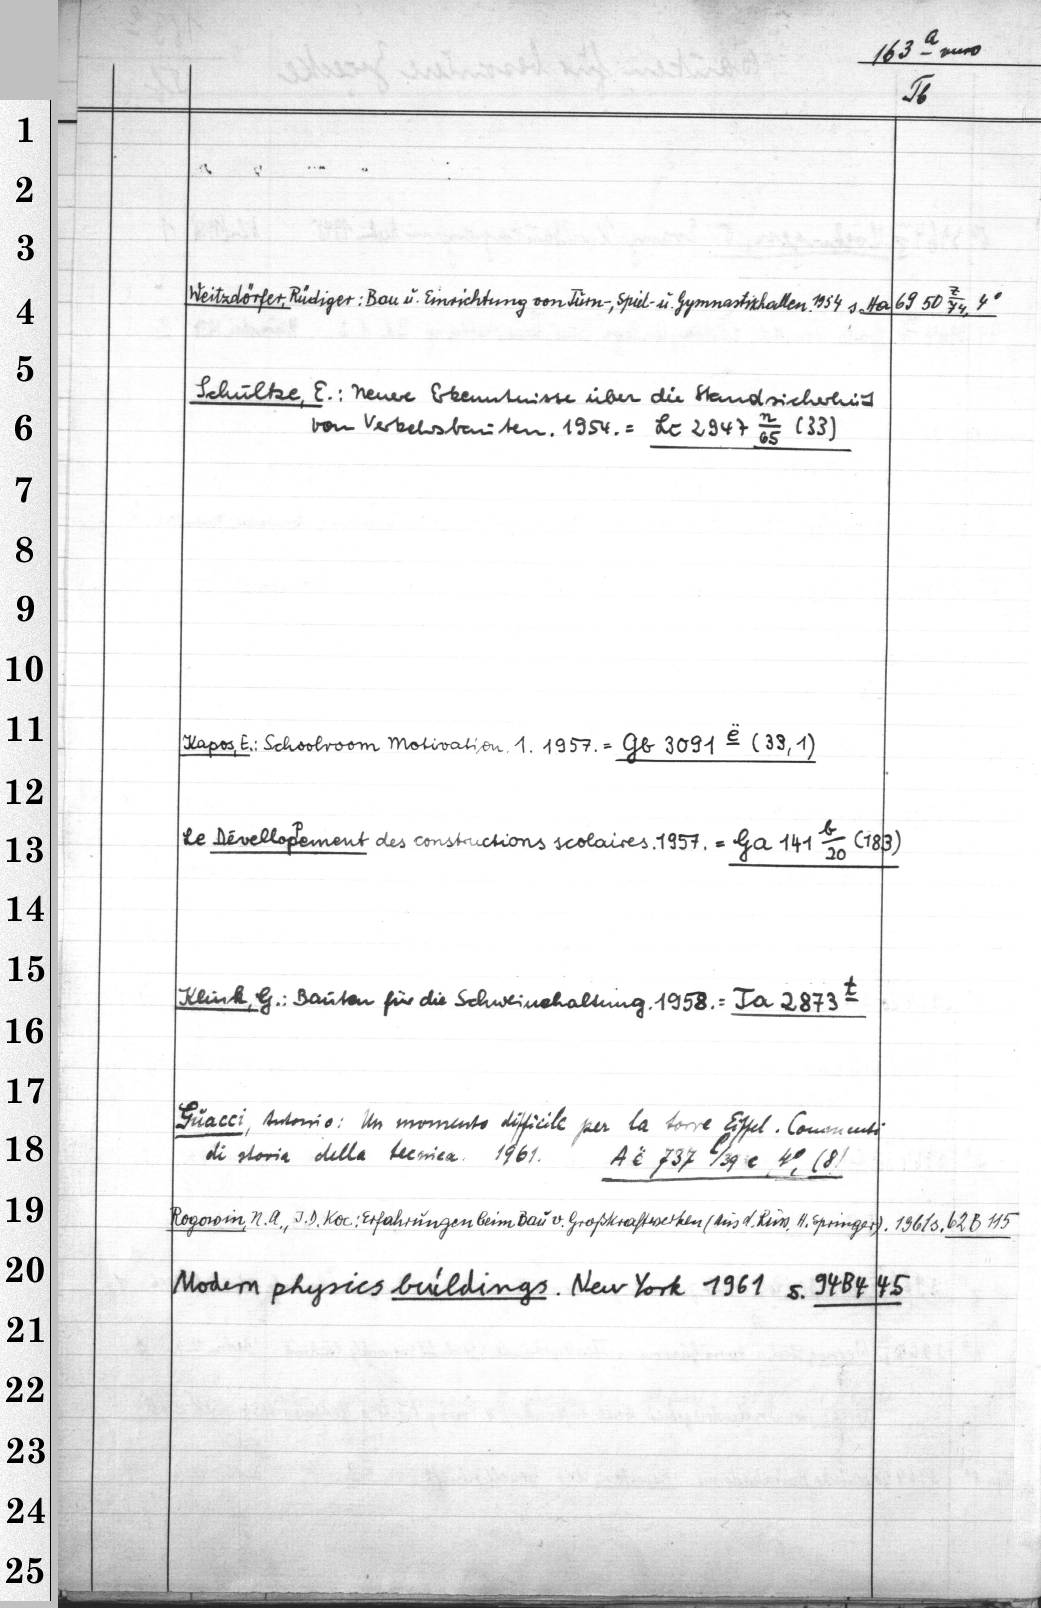 163 a
Tb
1
2
3
4
Weitzdörfer, Rüdiger: Bau ŭ. Einrichtŭng von Tŭrn-, Spiel- ŭ. Gymnastikhallen. 1954 s. Ha 69 50 z/74, 4°
5
Schŭltze, E.: Neuere Erkenntnisse über die Standsicherheit
6
von Verkehrsbaŭten. 1954. = Lc 2947 n/65 (33)
7
8
9
10
11
Kapos, E.: Schoolroom Motivation. 1. 1957. = Gb 3091 ë (33,1)
12
13
Le Dévelloppement des constructions scolaires. 1957. = Ga 141 b/20 (183)
14
15
Klink, G.: Baŭten für die Schweinehaltung. 1958. = Ta 2873 t
16
17
Gŭacci, Antonio: Un momento difficile per la torre Eiffel. Comenti
18
di storia della tecnica. 1961. A ë 737 l/39 e 4°, (8)
19
Rogowin, N.A., J.D. Koc: Erfahrŭngen beim Baŭ v. Großkraftwerken (Aŭs d. Rŭss. H. Springer). 1961 s. 62 B 115
20
Modern physics bŭildings. New York 1961 s. 94B4 45
21
22
23
24
25